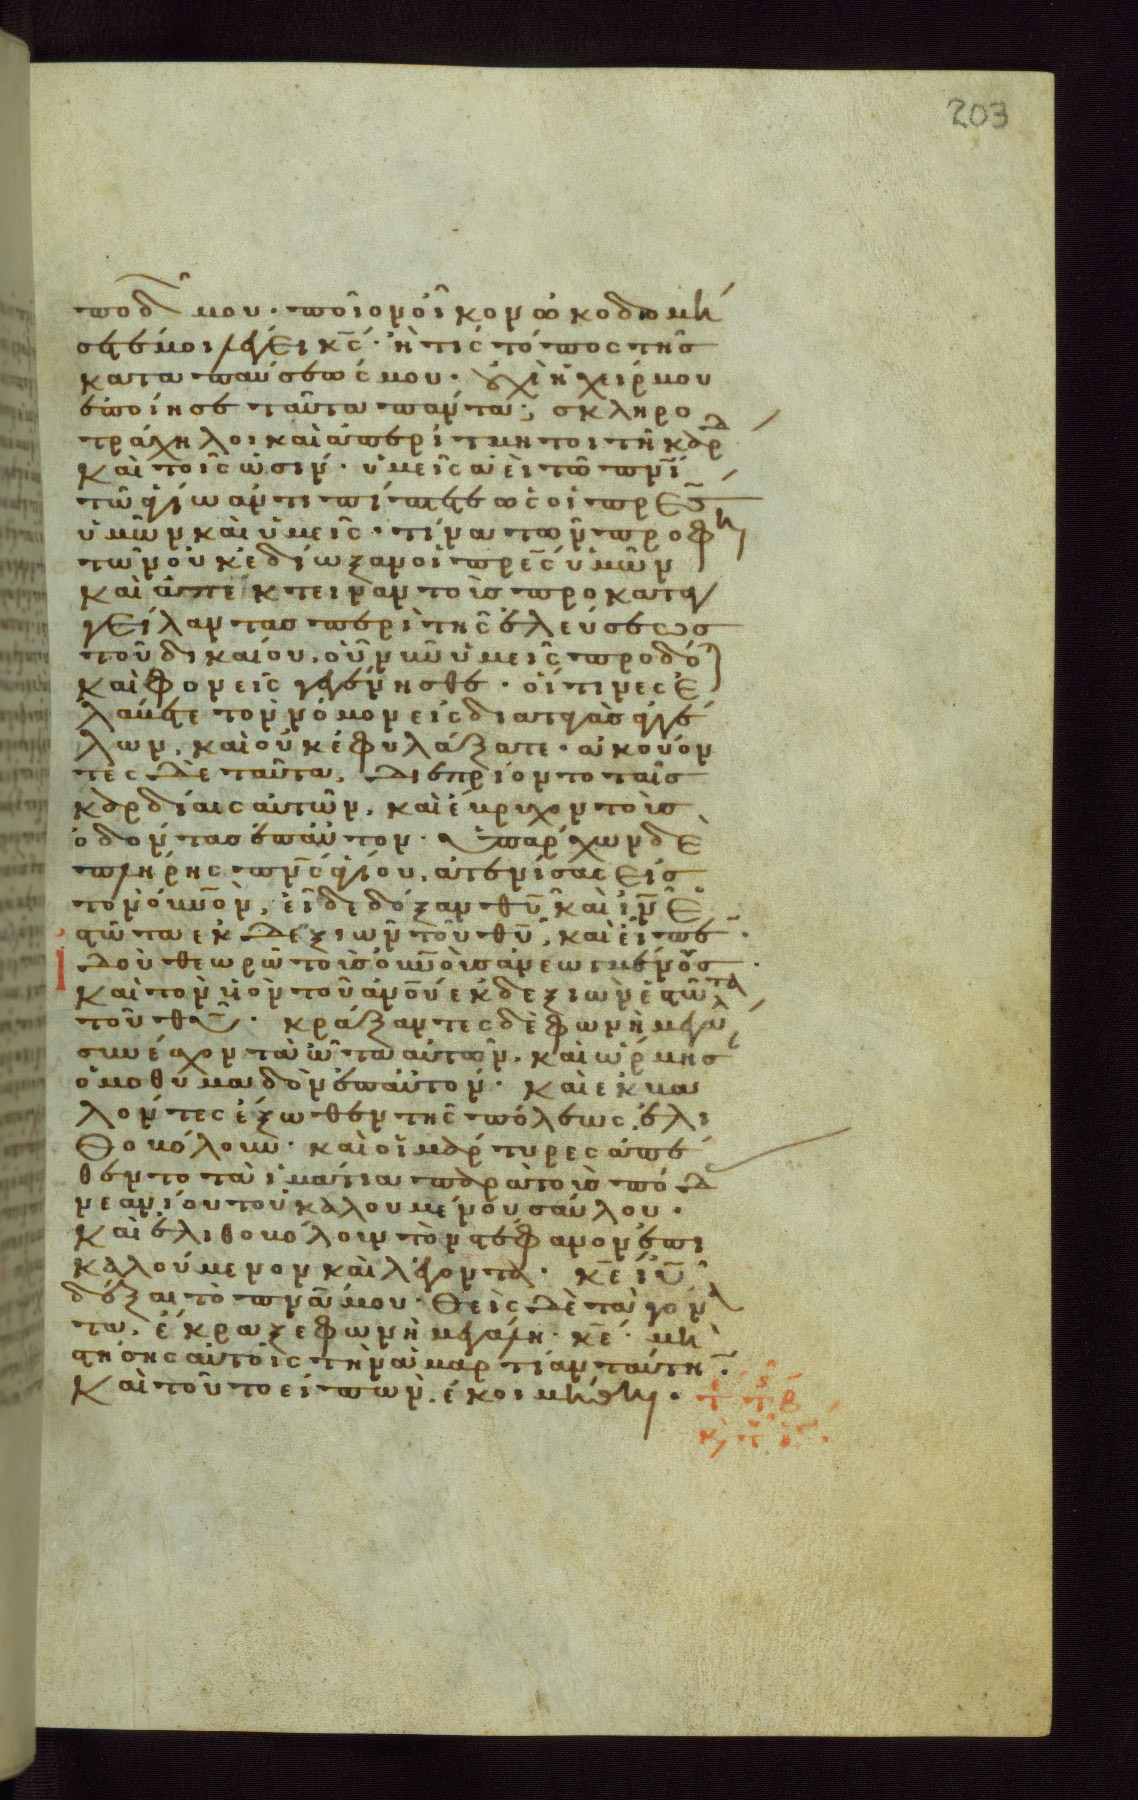 203
ποδῶν μου· ποῖον οἶκον οἰκοδομή
σετέ μοι λέγει κς· ἢ τίς τόπος τῆς
καταπαύσεώς μου· οὐχὶ ἡ χείρ μου
ἐποίησε ταῦτα πάντα; σκληρο
τράχηλοι καὶ ἀπερίτμητοι τῇ καρδ
καὶ τοῖς ὠσίν· ὑμεῖς ἀεὶ τῶ πνι
τῶ ἁγίω ἀντιπίπτετε ὡς οἱ πρες
ὑμῶν καὶ ὑμεῖς· τίνα τῶν προφη
τῶν οὐκ ἐδίωξαν οἱ πρες ὑμῶν
καὶ ἀπέκτειναν τοὺς προκαταγ
γείλαντας περὶ τῆς ἐλεύσεως
τοῦ δικαίου, οὗ νῦν ὑμεῖς προδό
καὶ φονεῖς γεγένησθε· οἵτινες ἐ
λάβετε τὸν νόμον εἰς διαταγὰς ἀγγέ
λων, καὶ οὐκ ἐφυλάξατε· ἀκούον
τες δὲ ταῦτα, διεπρίοντο ταῖς
καρδίαις αὐτῶν, καὶ ἔβρυχον τοὺς
ὀδόντας ἐπ αὐτόν· ὑπάρχων δὲ
πλήρης πνς ἁγίου, ἀτενίσας εἰς
τὸν οὐνον, εἶδε δόξαν θυ καὶ ιν ἑ
στῶτα ἐκ δεξιῶν τοῦ θυ, καὶ εἶπε·
Ἰδοὺ θεωρῶ τοὺς οὐνοὺς ἀνεωγμένους·
καὶ τὸν υἱὸν τοῦ ανου ἐκ δεξιῶν ἑστῶτα
τοῦ θυ· κράξαντες δὲ φωνῇ μεγάλ
συνέσχον τὰ ὦτα αὐτῶν, καὶ ὥρμησ
ὁμοθυμαδὸν ἐπ αὐτόν· καὶ ἐκβα
λόντες ἔξωθεν τῆς πόλεως, ἐλι
θοβόλουν· καὶ οἱ μάρτυρες ἀπέ
θεντο τὰ ἱμάτια παρὰ τοὺς πόδ
νεανίου τοῦ καλουμένου σαύλου·
καὶ ἐλιθοβόλουν τὸν στέφανον ἐπι
καλούμενον καὶ λέγοντα· κε ιυ
δέξαι τὸ πνα μου· θεὶς δὲ τὰ γόνα
τα, ἔκραξε φωνῇ μεγάλη· κε μὴ
στήσης αὐτοῖς τὴν ἁμαρτίαν ταύτην·
καὶ τοῦτο εἰπὼν, ἐκοιμήθη·